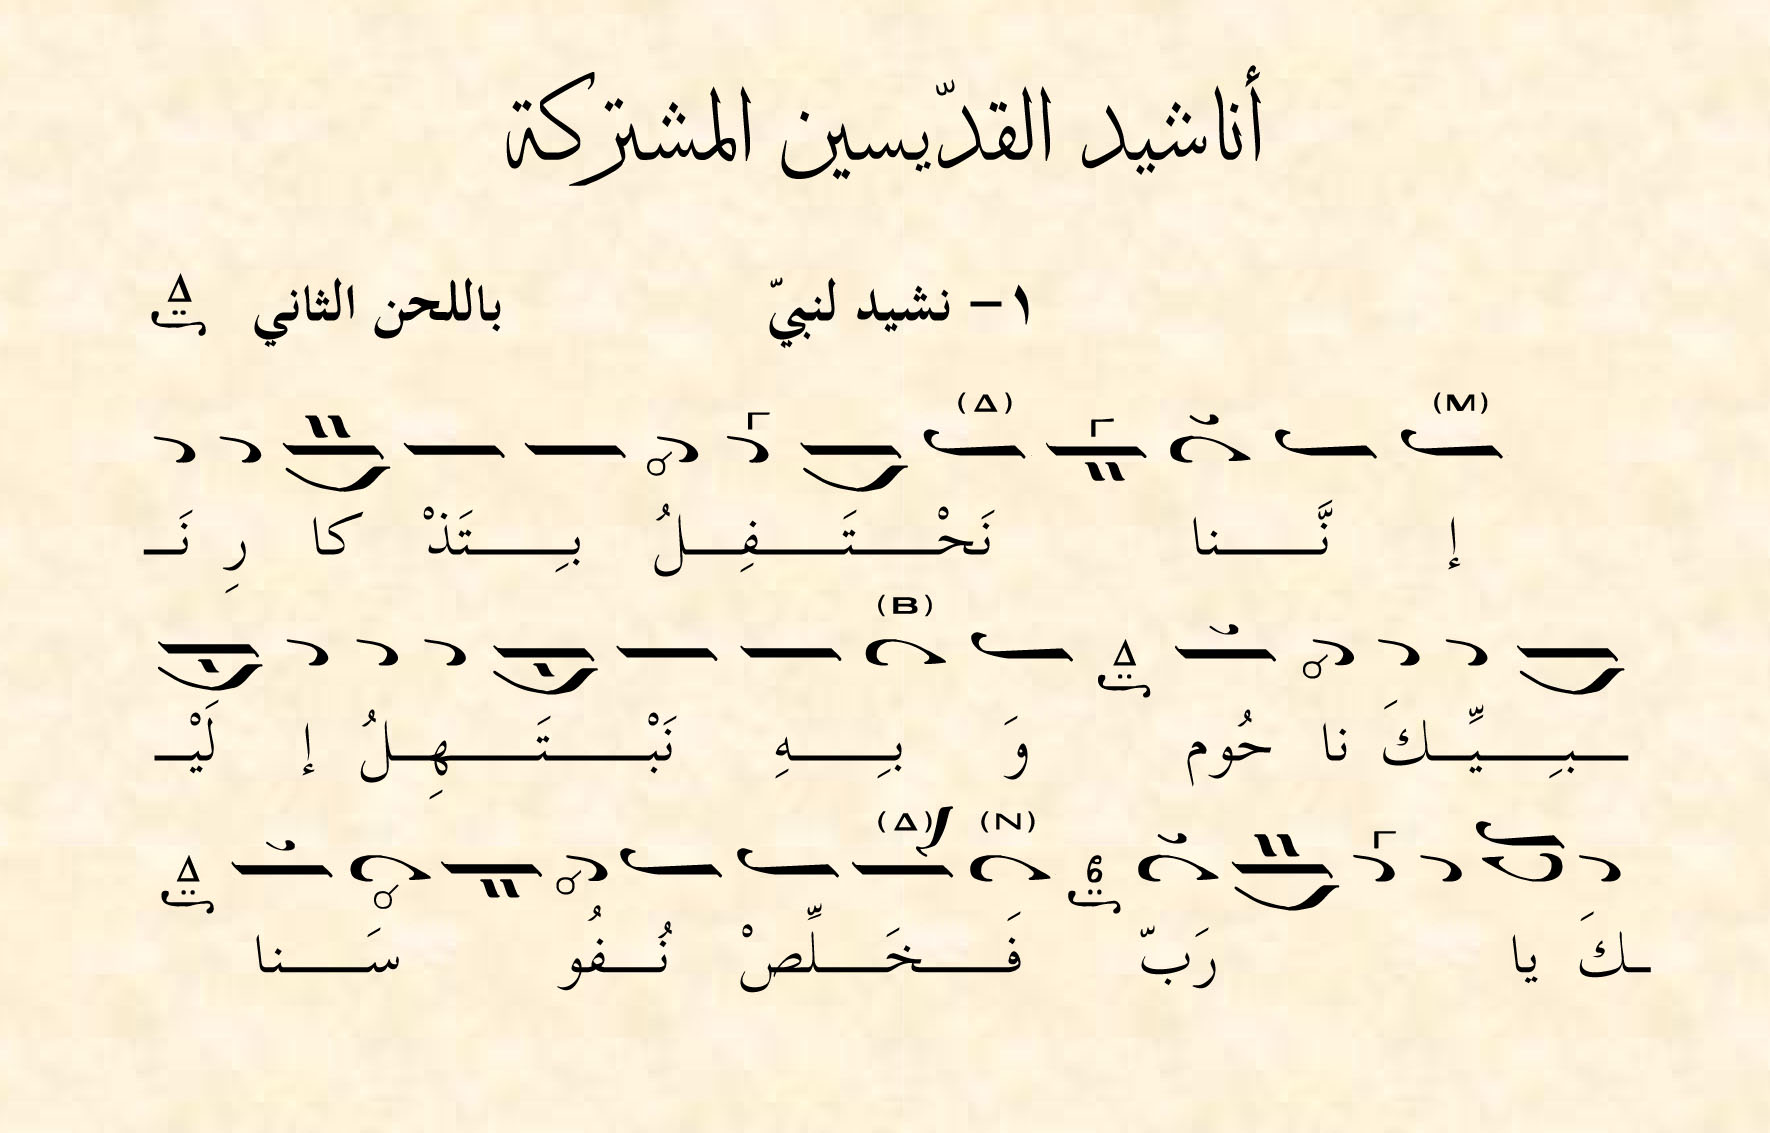 أناشيد القدّيسين المشتركة
١ – نشيد لنبيّ باللحن الثاني Δ
(M) (Δ)
إ نَّـــنا نَحْـــتَـــفِـــلُ بِـــتَذْ كا رِ نَـ
(B) Δ
ـبِـــيِّـــكَ نا حُوم وَ بِـــهِ نَبْـــتَـــهِـــلُ إ لَيْـ
(N) (Δ) Δ
ـكَ يا رَبّ فَـــخَـــلِّـــصْ نُـــفُو سَـــنا